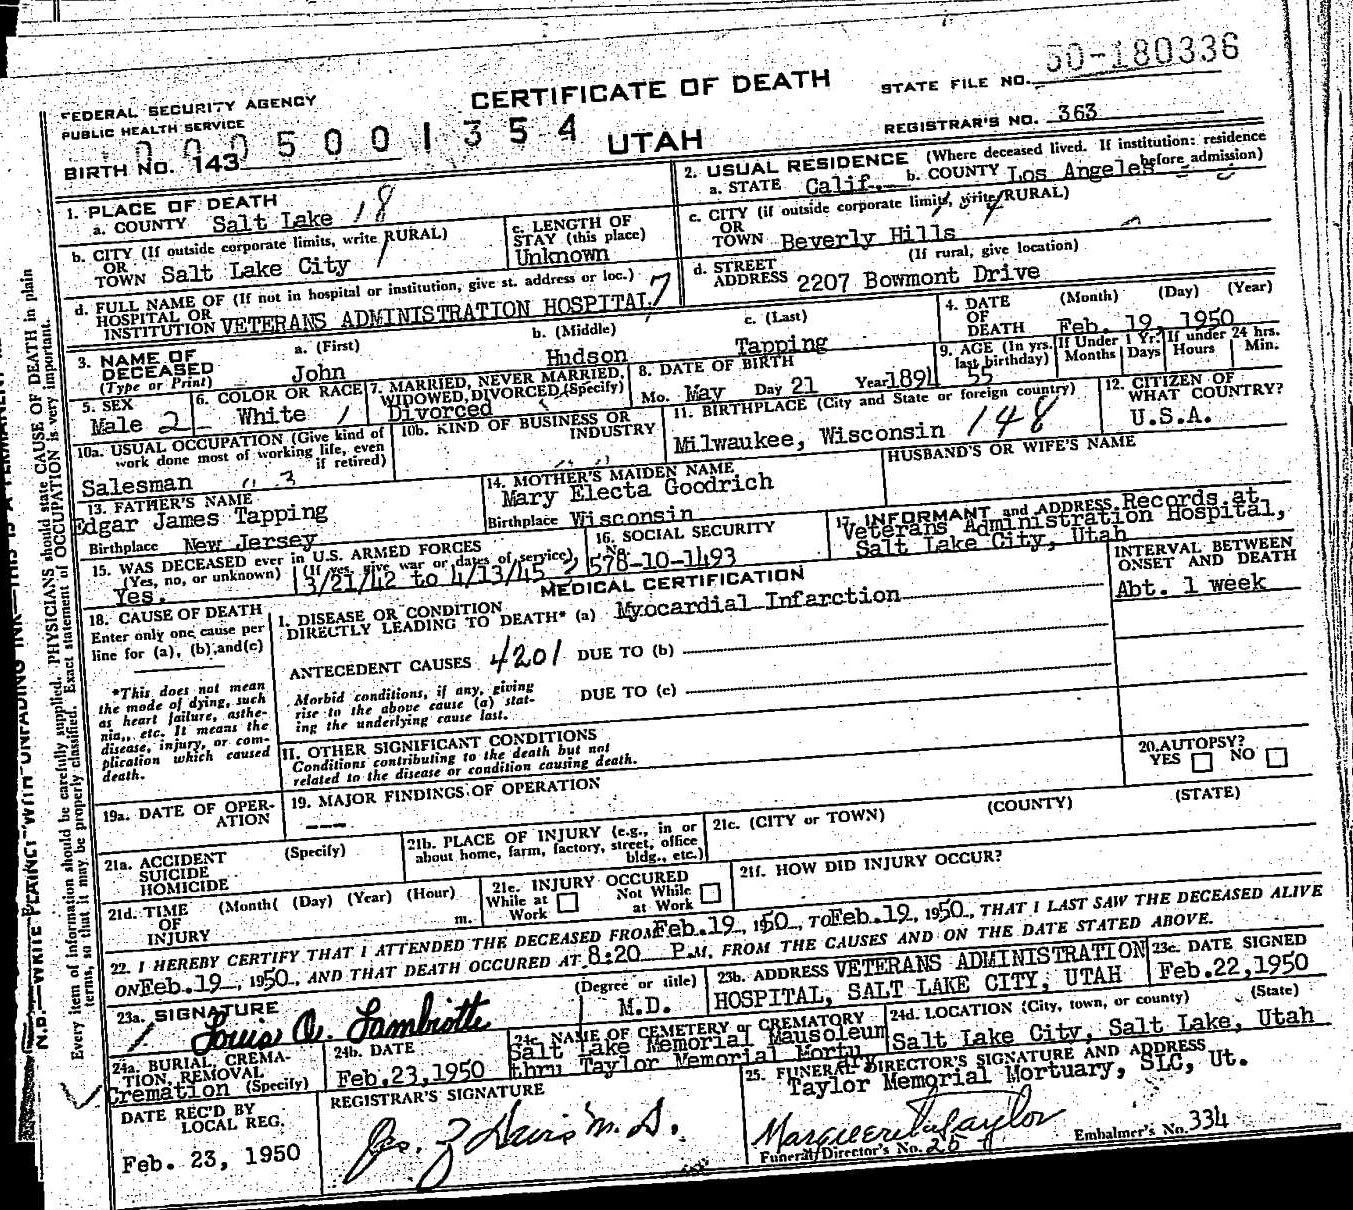 CERTIFICATE OF DEATH
STATE FILE NO. 50-180336
FEDERAL SECURITY AGENCY
PUBLIC HEALTH SERVICE
REGISTRAR'S NO. 363
0005001354
UTAH
BIRTH NO. 143
1. PLACE OF DEATH
a. COUNTY Salt Lake 18
2. USUAL RESIDENCE (Where deceased lived. If institution: residence before admission)
a. STATE Calif. b. COUNTY Los Angeles
b. CITY (If outside corporate limits, write RURAL)
OR
TOWN Salt Lake City
c. LENGTH OF
STAY (this place)
Unknown
c. CITY (if outside corporate limits, write RURAL)
OR
TOWN Beverly Hills
d. FULL NAME OF (If not in hospital or institution, give st. address or loc.)
HOSPITAL OR
INSTITUTION VETERANS ADMINISTRATION HOSPITAL 7
d. STREET (If rural, give location)
ADDRESS 2207 Bowmont Drive
3. NAME OF
DECEASED
(Type or Print)
a. (First) b. (Middle) c. (Last)
John Hudson Tapping
4. DATE (Month) (Day) (Year)
OF
DEATH Feb. 19, 1950
5. SEX
Male 2
6. COLOR OR RACE
White 1
7. MARRIED, NEVER MARRIED,
WIDOWED, DIVORCED (Specify)
Divorced
8. DATE OF BIRTH
Mo. May Day 21 Year 1894
9. AGE (In yrs. last birthday) If Under 1 Yr. If under 24 hrs.
Months Days Hours Min.
55
10a. USUAL OCCUPATION (Give kind of
work done most of working life, even
if retired)
Salesman
10b. KIND OF BUSINESS OR
INDUSTRY
11. BIRTHPLACE (City and State or foreign country)
Milwaukee, Wisconsin 148
12. CITIZEN OF
WHAT COUNTRY?
U.S.A.
13. FATHER'S NAME
Edgar James Tapping
Birthplace New Jersey
14. MOTHER'S MAIDEN NAME
Mary Electa Goodrich
Birthplace Wisconsin
HUSBAND'S OR WIFE'S NAME
15. WAS DECEASED ever in U.S. ARMED FORCES
(Yes, no, or unknown) (If yes, give war or dates of service)
Yes. 3/21/42 to 4/13/45 2
16. SOCIAL SECURITY
No.
578-10-1493
17. INFORMANT and ADDRESS Records at
Veterans Administration Hospital,
Salt Lake City, Utah
MEDICAL CERTIFICATION
INTERVAL BETWEEN
ONSET AND DEATH
18. CAUSE OF DEATH
Enter only one cause per
line for (a), (b) and (c)
I. DISEASE OR CONDITION
DIRECTLY LEADING TO DEATH* (a) Myocardial Infarction
Abt. 1 week
ANTECEDENT CAUSES 4201 DUE TO (b)
*This does not mean
the mode of dying, such
as heart failure, asthe-
nia, etc. It means the
disease, injury, or com-
plication which caused
death.
Morbid conditions, if any, giving
rise to the above cause (a) stat-
ing the underlying cause last.
DUE TO (c)
II. OTHER SIGNIFICANT CONDITIONS
Conditions contributing to the death but not
related to the disease or condition causing death.
19a. DATE OF OPER-
ATION
19. MAJOR FINDINGS OF OPERATION
---
20. AUTOPSY?
YES NO
21a. ACCIDENT (Specify)
SUICIDE
HOMICIDE
21b. PLACE OF INJURY (e.g., in or
about home, farm, factory, street, office
bldg., etc.)
21c. (CITY or TOWN) (COUNTY) (STATE)
21d. TIME (Month( (Day) (Year) (Hour)
OF
INJURY m.
21e. INJURY OCCURED
While at Work Not While at Work
21f. HOW DID INJURY OCCUR?
22. I HEREBY CERTIFY THAT I ATTENDED THE DECEASED FROM Feb.19, 1950, TO Feb.19, 1950, THAT I LAST SAW THE DECEASED ALIVE
ON Feb.19, 1950, AND THAT DEATH OCCURED AT 8:20 P.M. FROM THE CAUSES AND ON THE DATE STATED ABOVE.
23a. SIGNATURE (Degree or title)
Louis O. Lambiotte M.D.
23b. ADDRESS VETERANS ADMINISTRATION
HOSPITAL, SALT LAKE CITY, UTAH
23c. DATE SIGNED
Feb.22,1950
24a. BURIAL, CREMA-
TION, REMOVAL
Cremation (Specify)
24b. DATE
Feb.23,1950
24c. NAME OF CEMETERY or CREMATORY
Salt Lake Memorial Mausoleum
thru Taylor Memorial Mortuary
24d. LOCATION (City, town, or county) (State)
Salt Lake City, Salt Lake, Utah
DATE REC'D BY
LOCAL REG.
Feb. 23, 1950
REGISTRAR'S SIGNATURE
25. FUNERAL DIRECTOR'S SIGNATURE AND ADDRESS
Taylor Memorial Mortuary, SLC, Ut.
Marguerite Taylor
Funeral Director's No. 257 Embalmer's No. 334
Every item of information should be carefully supplied. PHYSICIANS should state CAUSE OF DEATH in plain
terms, so that it may be properly classified. Exact statement of OCCUPATION is very important.
N.B.—WRITE PLAINLY WITH UNFADING INK—THIS IS A PERMANENT